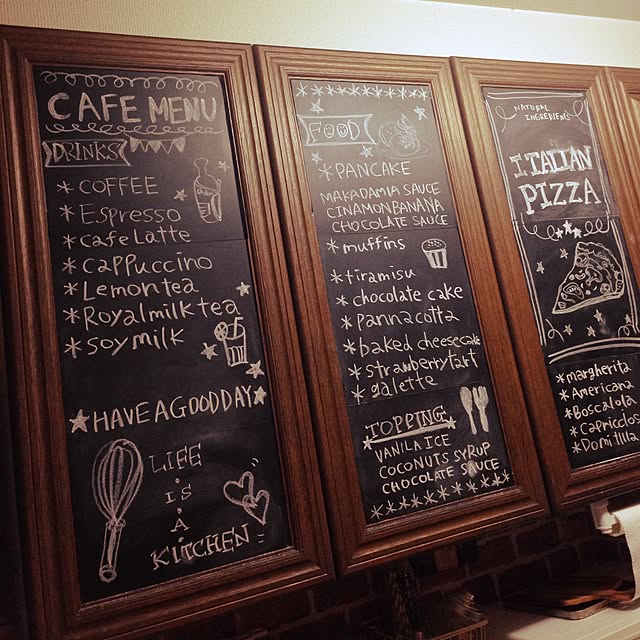 CAFE MENU
DRINKS
* COFFEE
* Espresso
* cafe Latte
* cappuccino
* Lemon tea
* Royal milk tea
* soy milk
HAVE A GOOD DAY
LIFE
· IS ·
A ·
KITCHEN
FOOD
* PANCAKE
MAKADAMIA SAUCE
CINAMON BANANA
CHOCOLATE SAUCE
* muffins
* tiramisu
* chocolate cake
* panna cotta
* baked cheesecake
* strawberry tart
* galette
TOPPING
VANILA ICE
COCONUTS SYRUP
CHOCOLATE SAUCE
NATURAL
INGREDIENS
ITALIAN
PIZZA
* margherita
* Americana
* Boscalola
* Capricciosa
* Domitilla